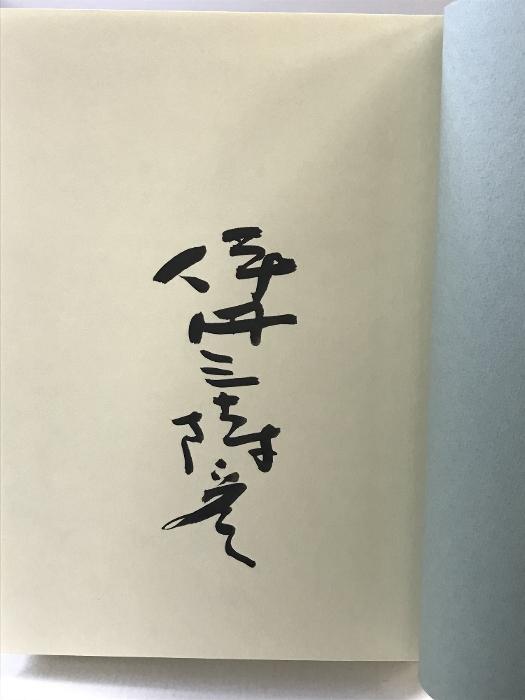 伊丹三樹彦